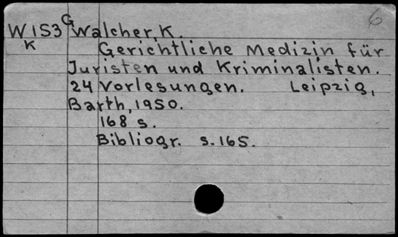 6
W1S3 G Walcher, K.
K Gerichtliche Medizin für
Juristen und Kriminalisten.
24 Vorlesungen. Leipzig,
Barth, 1950.
168 s.
Bibliogr. s. 165.